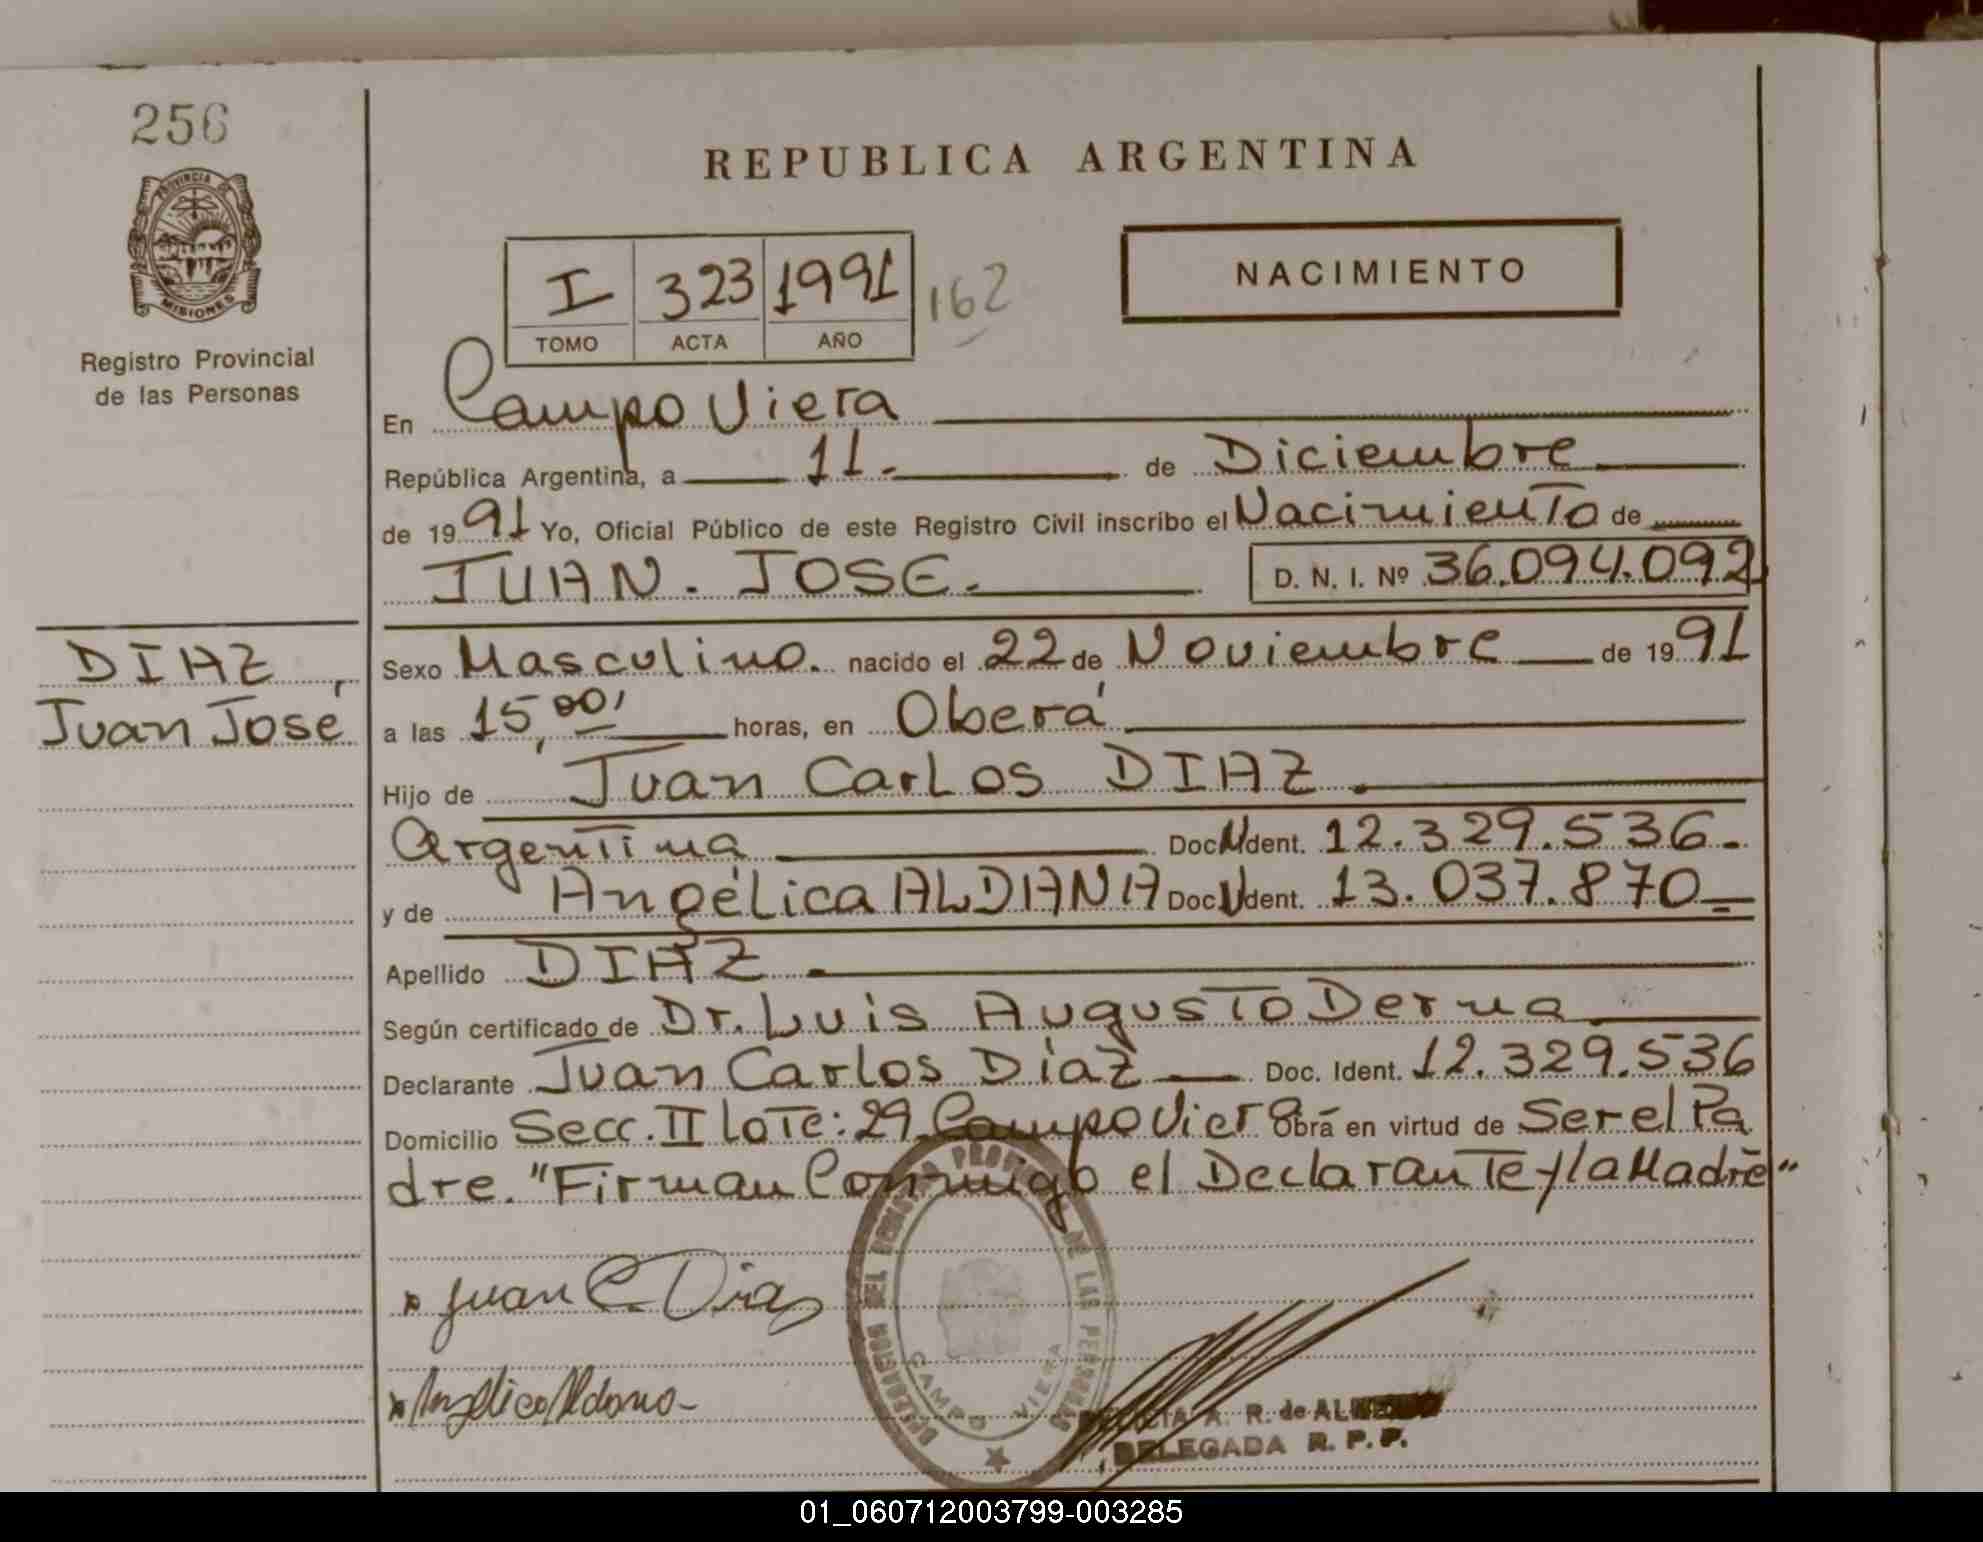 256
PROVINCIA DE
MISIONES
Registro Provincial
de las Personas
REPUBLICA ARGENTINA
I 323 1991 162
TOMO ACTA AÑO
NACIMIENTO
En Campo Viera
República Argentina, a 11.- de Diciembre
de 1991 Yo, Oficial Público de este Registro Civil inscribo el Nacimiento de
JUAN. JOSE.- D. N. I. Nº 36.094.092
DIAZ,
Juan José
Sexo Masculino. nacido el 22 de Noviembre de 1991
a las 15,00' horas, en Oberá
Hijo de Juan Carlos DIAZ.
Argentina Doc. Ident. 12.329.536.-
y de Angélica ALDANA Doc. Ident. 13.037.870.-
Apellido DIAZ.-
Según certificado de Dr. Luis Augusto Derna
Declarante Juan Carlos Díaz Doc. Ident. 12.329.536
Domicilio Secc. II Lote: 29 Campo Viera Obra en virtud de Ser el Pa
dre. "Firman Conmigo el Declarante y la Madre"
Juan C. Diaz
Angelica Aldana
DEL REGISTRO DE LAS PERSONAS
CAMPO VIERA
A. R. de
DELEGADA R. P. P.
01_060712003799-003285